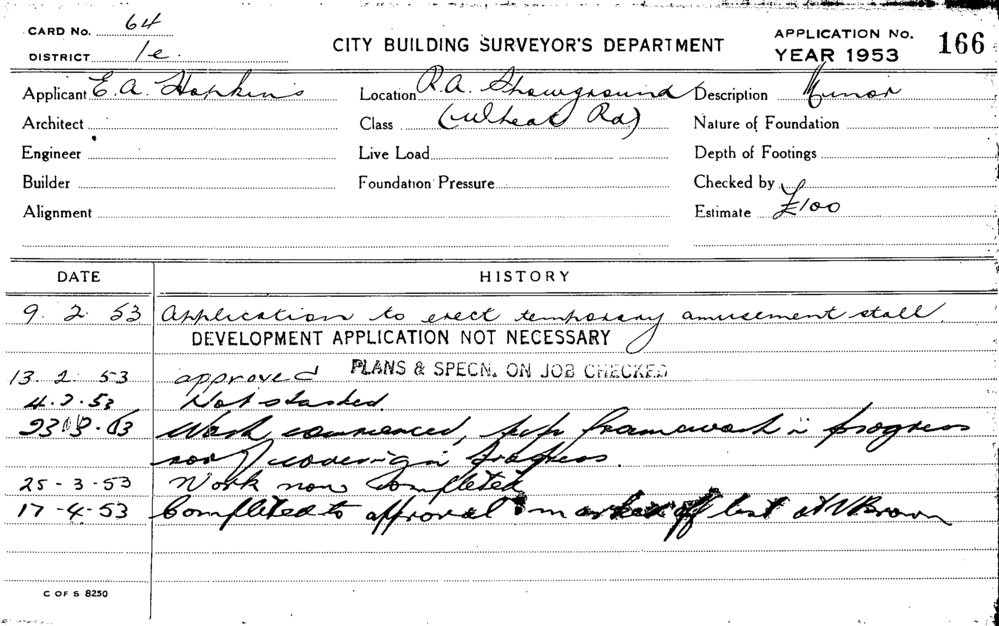 CARD No. 64
DISTRICT 1e
CITY BUILDING SURVEYOR'S DEPARTMENT
APPLICATION No. 166
YEAR 1953
Applicant E.A. Hopkins Location R.A. Showground Description Minor
Architect Class (Wheat Rd) Nature of Foundation
Engineer Live Load Depth of Footings
Builder Foundation Pressure Checked by
Alignment Estimate £100
DATE HISTORY
9. 2. 53 Application to erect temporary amusement stall.
DEVELOPMENT APPLICATION NOT NECESSARY
13. 2. 53 approved PLANS & SPECN. ON JOB CHECKED
4.3.53 Not started.
23.3.53 Work commenced, framework in progress
roof covering in progress.
25-3-53 Work now Completed
17-4-53 Completed to approval off list Brown
C OF S 8250